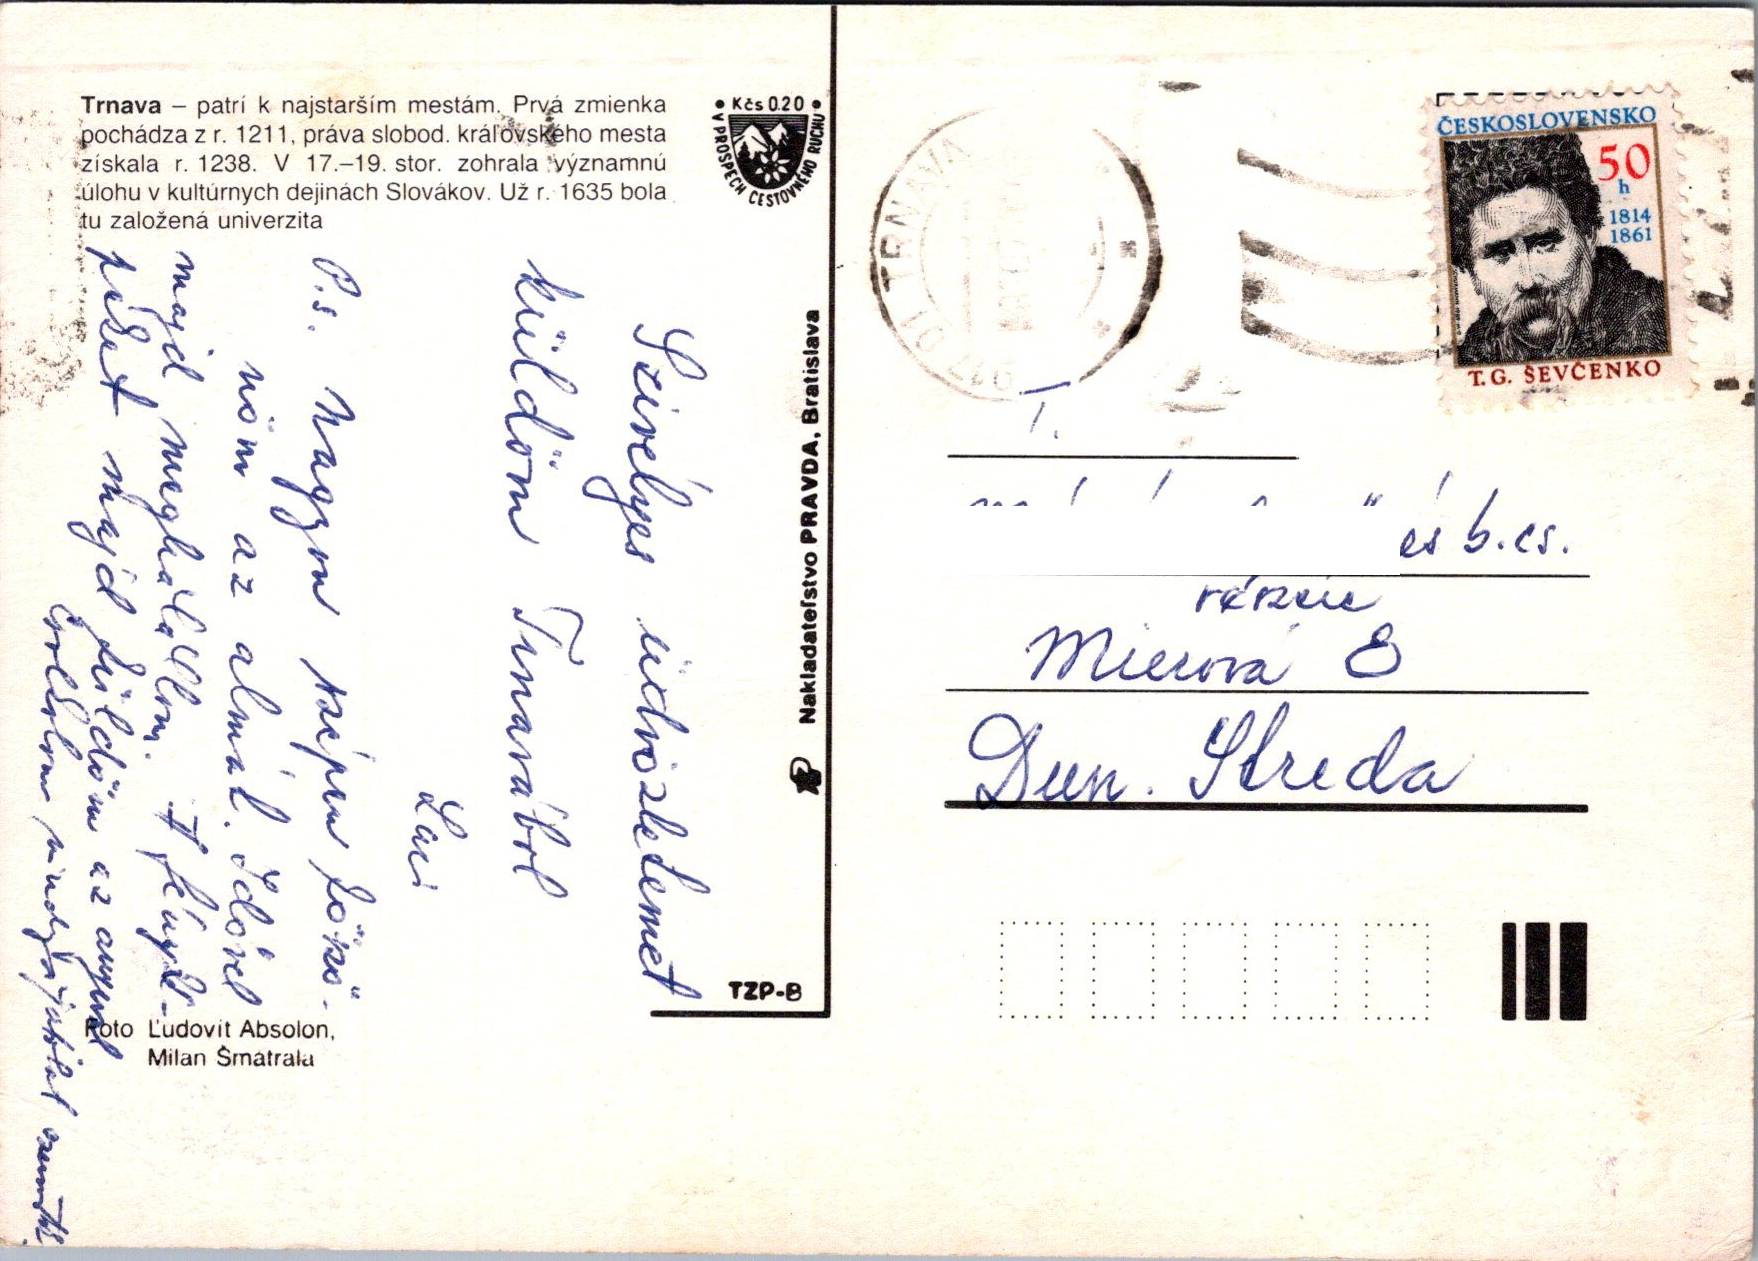 Trnava – patrí k najstarším mestám. Prvá zmienka
pochádza z r. 1211, práva slobod. kráľovského mesta
získala r. 1238. V 17.–19. stor. zohrala významnú
úlohu v kultúrnych dejinách Slovákov. Už r. 1635 bola
tu založená univerzita
• Kčs 0.20 •
V PROSPECH CESTOVNÉHO RUCHU
Szívélyes üdvözletemet
küldöm Trnavából
Laci
P.s. Nagyon szépen köszö-
nöm az almát. Idővel
majd meghálálom. A fény-
képet majd küldöm az anyu
Nakladateľstvo PRAVDA, Bratislava
TZP-B
Foto Ľudovít Absolon,
Milan Šmatrala
917 01 TRNAVA
ČESKOSLOVENSKO
50
h
1814
1861
T. G. ŠEVČENKO
T.
és b. cs.
részére
Mierová 8
Dun. Streda